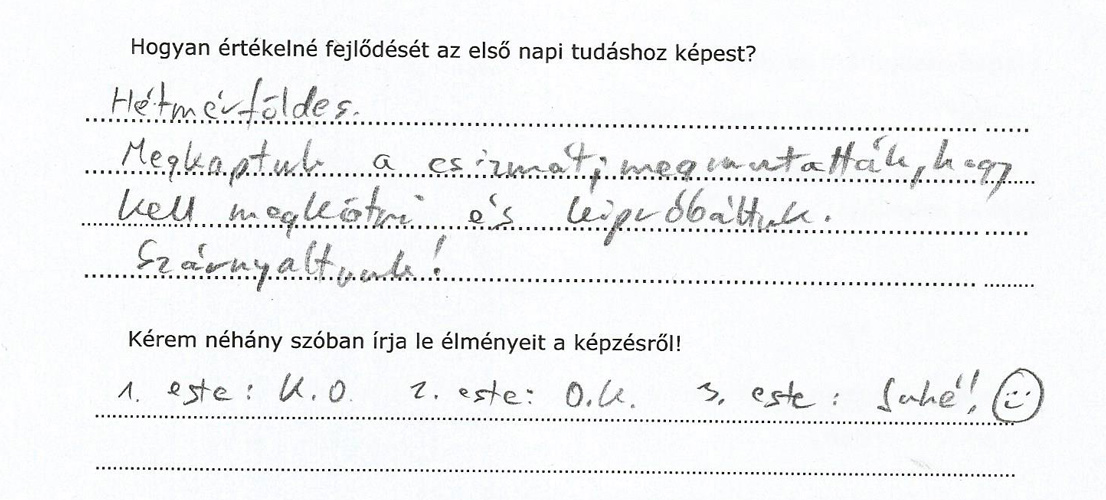 Hogyan értékelné fejlődését az első napi tudáshoz képest?
Hétmérföldes.
Megkaptuk a csizmát, megmutatták, hogy
kell megkötni és kipróbáltuk.
Szárnyaltunk!
Kérem néhány szóban írja le élményeit a képzésről!
1. este: K.O. 2. este: O.K. 3. este: Juhé!!